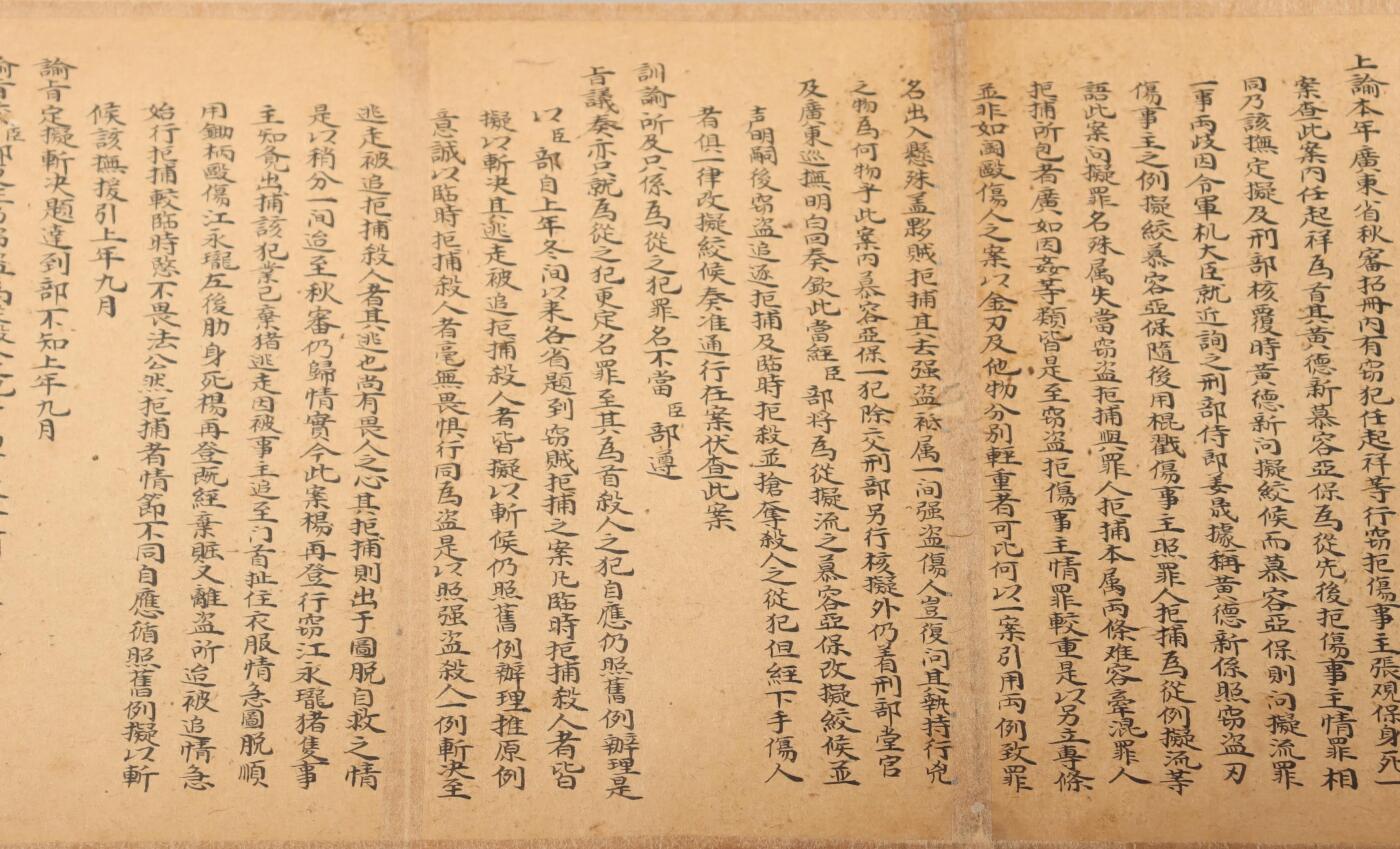 上諭本年廣東省秋審招冊內有竊犯任起祥等行竊拒傷事主張观保身死一
案查此案內任起祥為首其黃德新慕容亞保為從先後拒傷事主情罪相
同乃該撫定擬及刑部核覆時黃德新问擬絞候而慕容亞保則问擬流罪
一事兩歧因令軍机大臣就近詢之刑部侍郎姜晟據稱黃德新係照窃盜刃
傷事主之例擬絞慕容亞保隨後用棍戳傷事主照罪人拒捕為從例擬流等
語此案问擬罪名殊属失當窃盜拒捕與罪人拒捕本属兩條难容牽混罪人
拒捕所包者廣如因姦等類皆是至窃盜拒傷事主情罪較重是以另立專條
並非如鬥毆傷人之案以金刃及他物分別輕重者可比何以一案引用两例致罪
名出入懸殊盖夥賊拒捕其去强盜祗属一间强盜傷人豈復问其執持行兇
之物為何物乎此案內慕容亞保一犯除交刑部另行核擬外仍着刑部堂官
及廣東巡撫明白回奏欽此當經臣部將為從擬流之慕容亞保改擬絞候並
声明嗣後窃盜追逐拒捕及臨時拒殺並搶奪殺人之從犯但經下手傷人
者俱一律改擬絞候奏准通行在案伏查此案
訓諭所及只係為從之犯罪名不當臣部遵
旨議奏亦只就為從之犯更定名罪至其為首殺人之犯自應仍照舊例辦理是
以臣部自上年冬间以来各省題到窃賊拒捕之案凡臨時拒捕殺人者皆
擬以斬决其逃走被追拒捕殺人者皆擬以斬候仍照舊例辦理推原例
意誠以臨時拒捕殺人者毫無畏惧行同為盜是以照强盜殺人一例斬决至
逃走被追拒捕殺人者其逃也尚有畏人之心其拒捕則出于圖脱自救之情
是以稍分一间迨至秋審仍歸情實今此案楊再登行窃江永瓏猪隻事
主知覓出捕該犯業已棄猪逃走因被事主追至门首扯住衣服情急圖脱順
用鋤柄毆傷江永瓏左後肋身死楊再登既經棄賍又離盜所迨被追情急
始行拒捕較臨時愍不畏法公然拒捕者情節不同自應循照舊例擬以斬
候該撫援引上年九月
諭旨定擬斬决題達到部不知上年九月